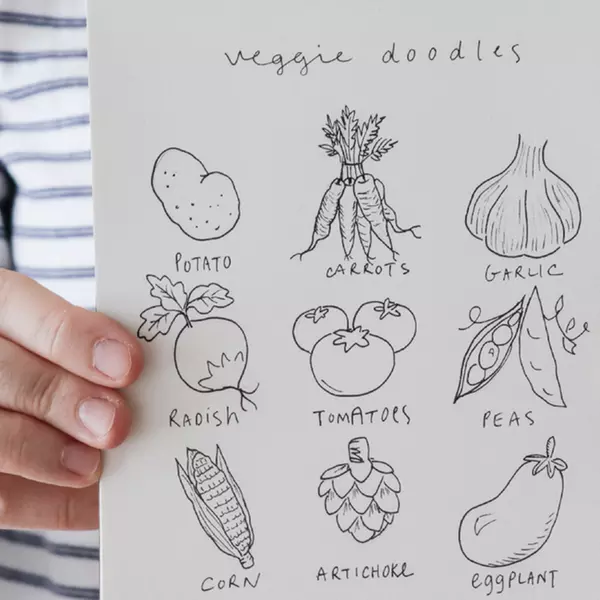 veggie doodles
POTATO
CARROTS
GARLIC
RADISh
TOMATOES
PEAS
CORN
ARTICHOKE
eggPLANT